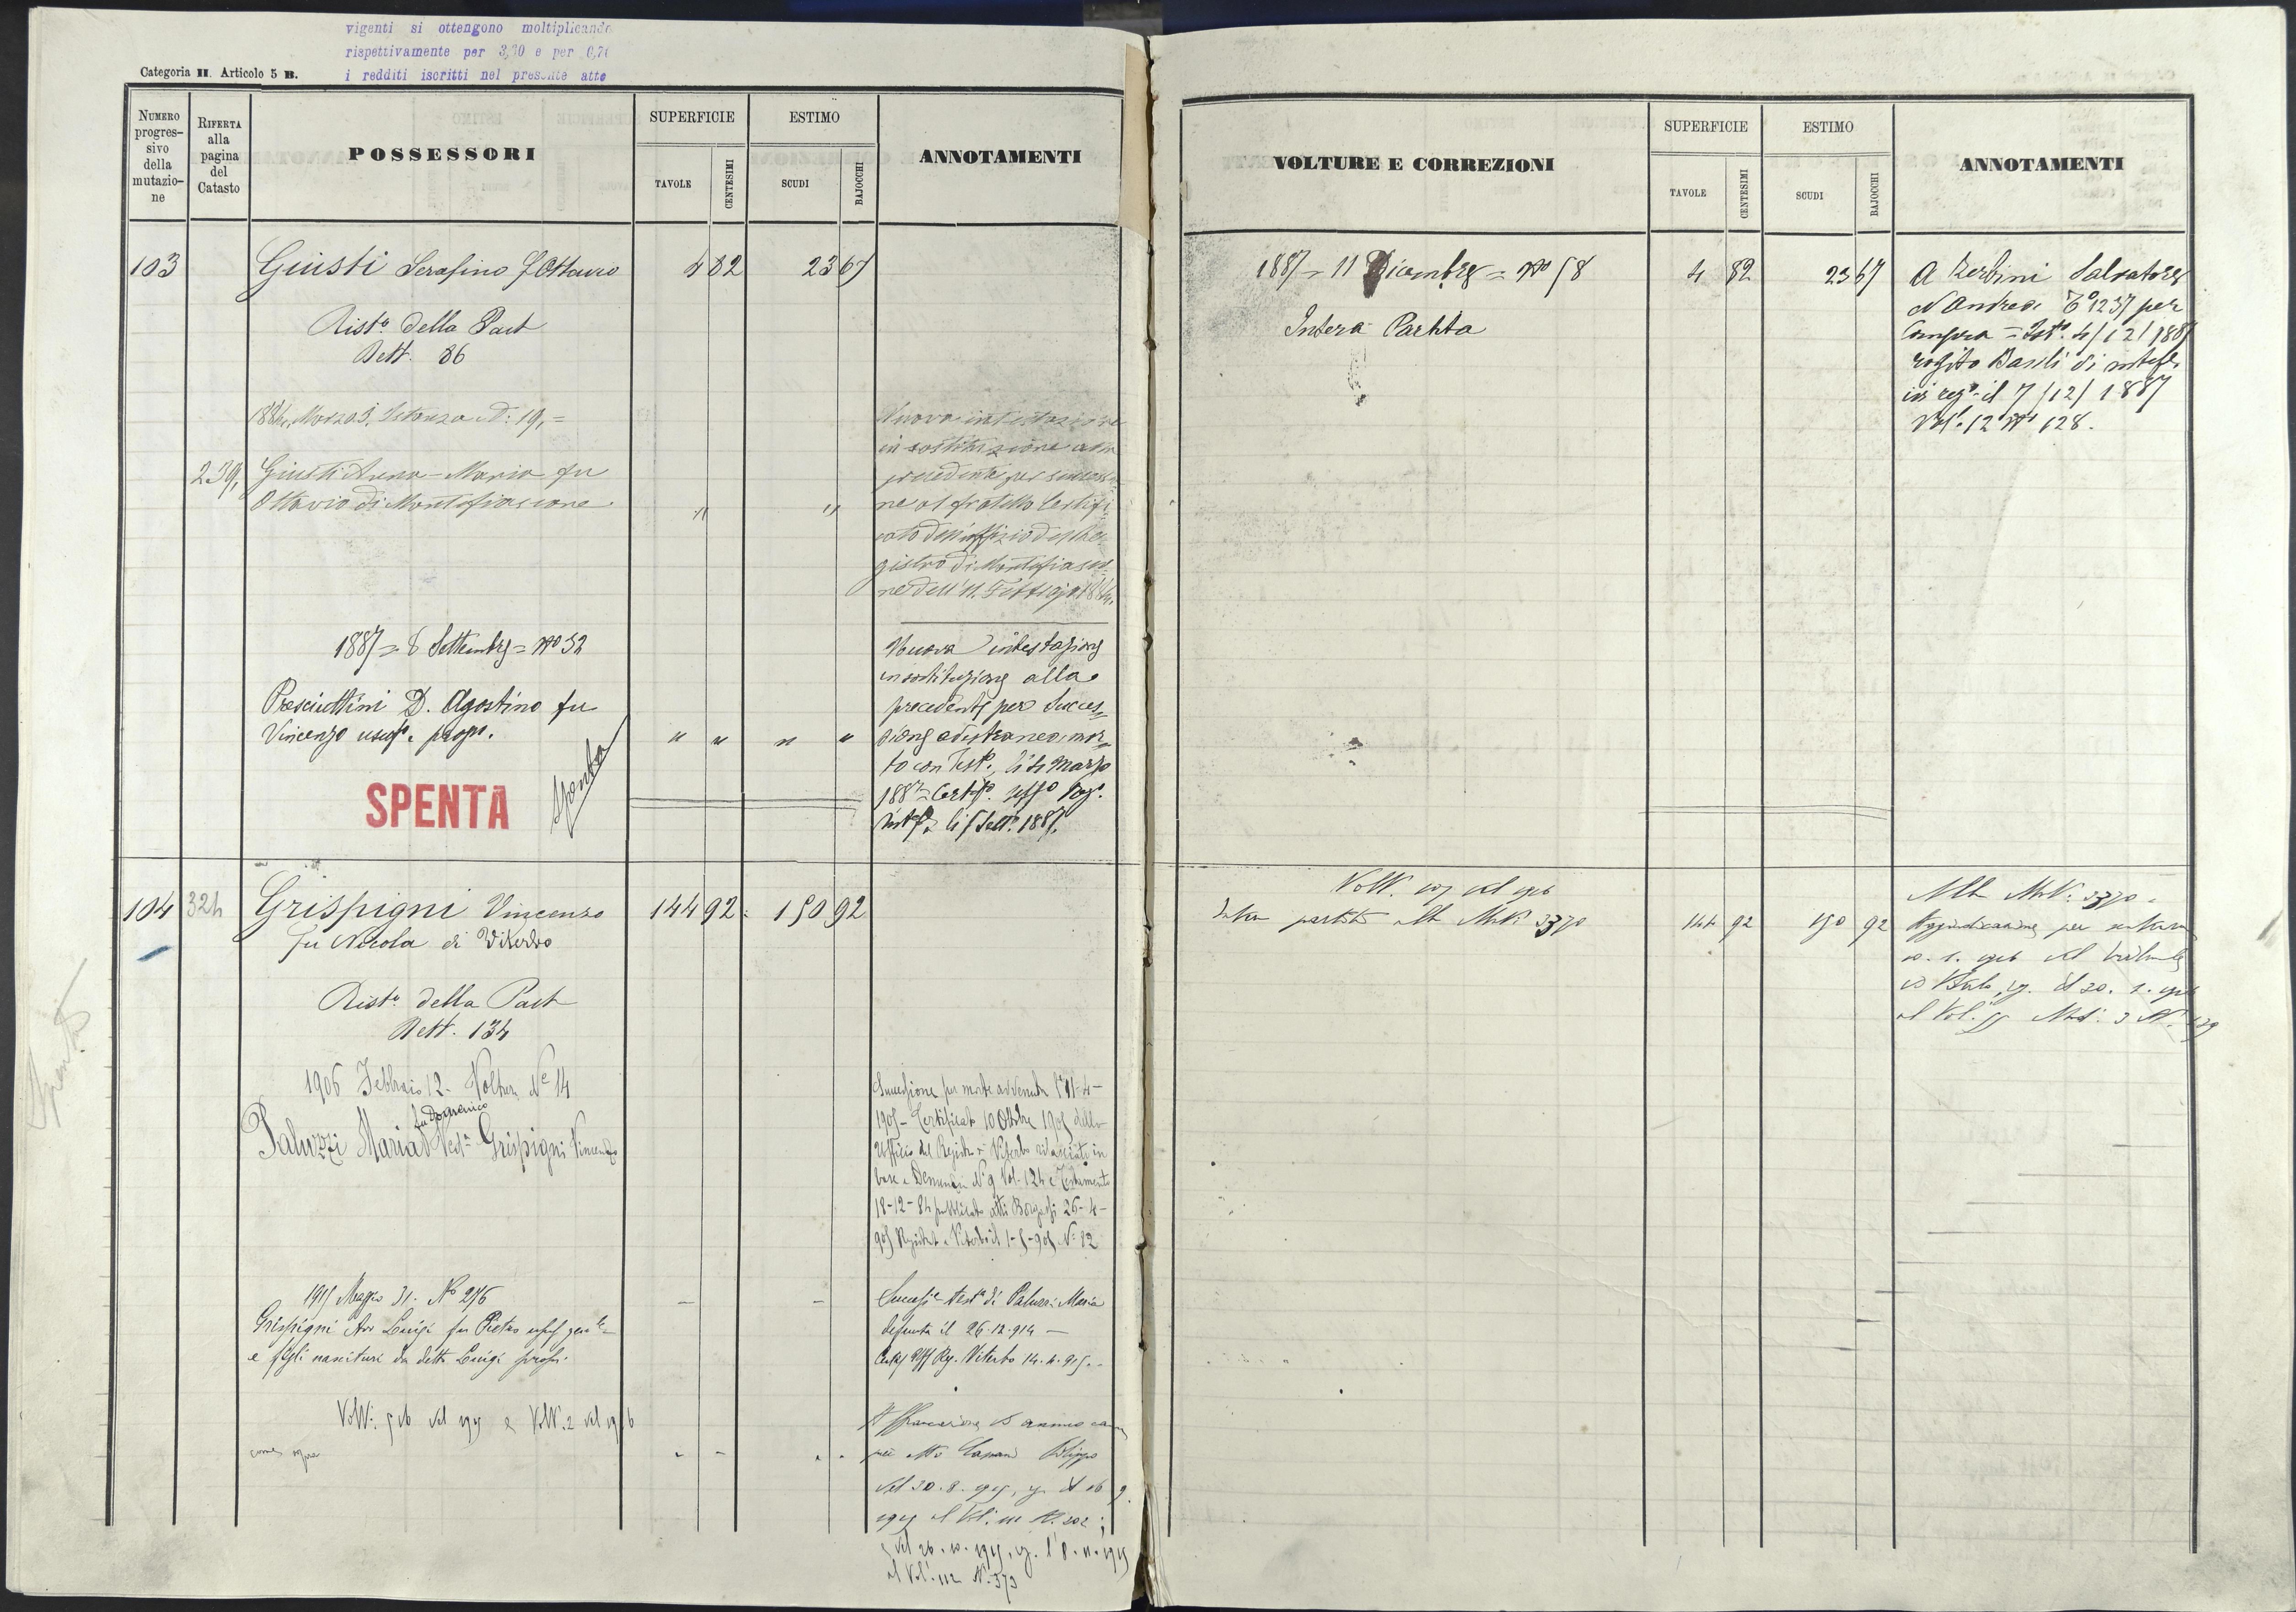 vigenti si ottengono moltiplicando
rispettivamente per 3,70 e per 0,74
i redditi iscritti nel presente atto
Categoria II. Articolo 5 B.
NUMERO progres- sivo della mutazio- ne
RIFERTA alla pagina del Catasto
POSSESSORI
SUPERFICIE
TAVOLE
CENTESIMI
ESTIMO
SCUDI
BAJOCCHI
ANNOTAMENTI
103 Giusti Serafino f Ottavio 4 82 23 67
Rist.º della Part
Rett. 86
Marzo 3, N: 19, =
239, Giusti Anna-Maria fu
Ottavio di Montefiascone " "
Nuova intestazione
in sostituzione alla
precedente per successio
ne al fratello Certifi-
cato dell'uffizio del Re-
gistro di Montefiasco
ne dell'11.
1887 = 8 Settembre = Nº 32
Presciuttini D. Agostino fu
Vincenzo usuf. e propr. " " " "
SPENTA
Spenta
Nuova intestazione
in sostituzione alla
precedente per Succes=
sione ad estraneo, mor=
to con Test.º, li Marzo
1887 = Certif.º Uff.º Reg.º
li 5 Sett.e 1887.
104 324 Grispigni Vincenzo 144 92 150 92
fu Nicola di Viterbo
Rist.º della Part
Rett. 134
Spenta
1906 Febbraio 12 - Voltura Nº 14
fu Domenico
Paluzzi Maria Ved.a Grispigni Vincenzo
Successione per morte avvenuta l'11-4-
1905 - Certificato 10 Ottobre 1905 dello
Ufficio del Registro di Viterbo rilasciato in
base a Denunzia Nº 9 Vol. 124 e Testamento
18-12-84 pubblicato atti 26-4-
905 Registrato a Viterbo il 1-5-905 Nº 82
1915 Maggio 31. Nº 276
Grispigni Avv Luigi fu Pietro usuf. gen.le
e figli nascituri da detto Luigi propr. — —
Success.e test.a di Paluzzi Maria
defunta il 26.12.914 —
Certif Uff Reg. Viterbo 14.4.915.
Volt: 516 del 1915 e Volt. 2 del 1916
come sopra
Affrancazione di annuo
per atto Filippo
del 30.8.1915, reg. il 16 9.
1915 al Vol. 111 N. 202;
e del 26.10.1915, reg. l'8.11.1915
al Vol. 112 N. 373
VOLTURE E CORREZIONI
SUPERFICIE
TAVOLE
CENTESIMI
ESTIMO
SCUDI
BAJOCCHI
ANNOTAMENTI
1887 = 11 Dicembre = Nº 58 4 82 23 67
Intera Partita
A Salvatore
d'Andrea 1237 per
Compra = Ist.º 4/12/1887
rogito Basili di
reg.º il 7/12/1887
Vol. 12 Nº 128.
Volt. del 1926
Intera partita alla 3370 144 92 150 92
Alla 3370.
Aggiudicazione per sentenza
del tribunale
di Viterbo, reg. il 20.
al Vol.